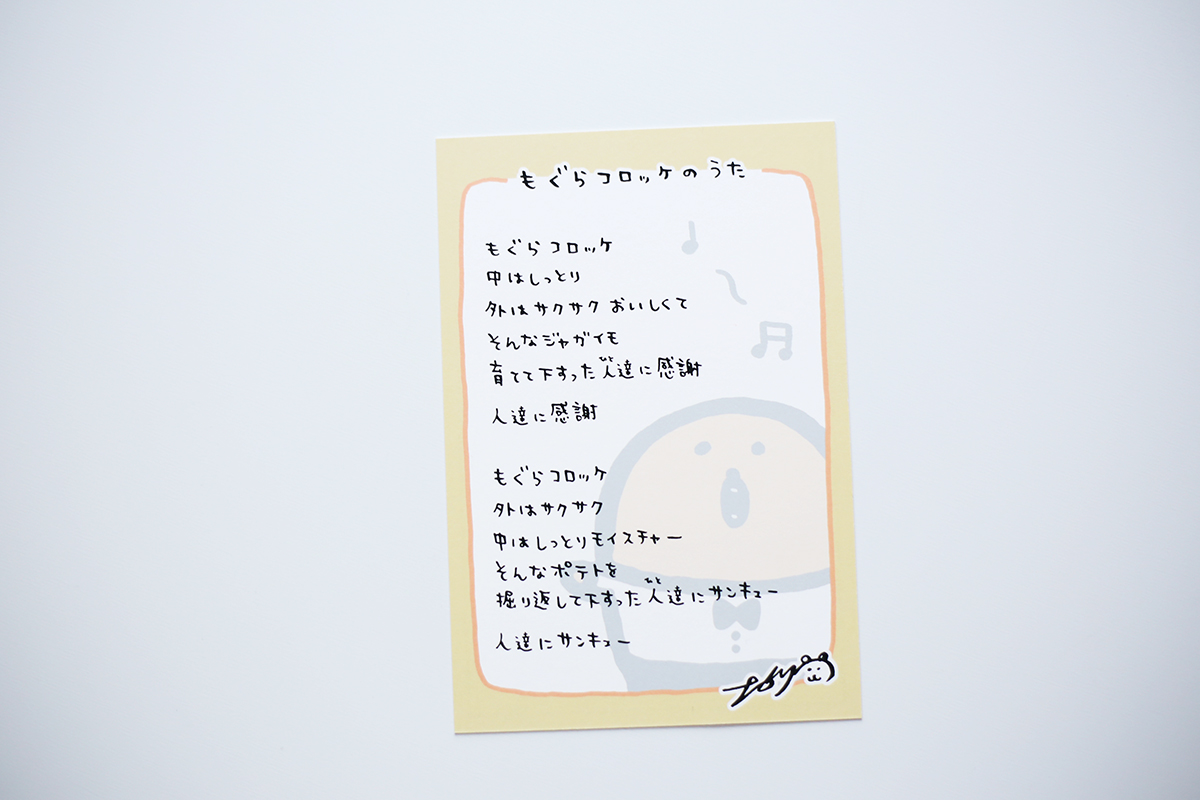 もぐらコロッケのうた
もぐらコロッケ
中はしっとり
外はサクサク おいしくて
そんなジャガイモ
育てて下すった人達に感謝
人達に感謝
もぐらコロッケ
外はサクサク
中はしっとりモイスチャー
そんなポテトを
掘り返して下すった人達にサンキュー
人達にサンキュー